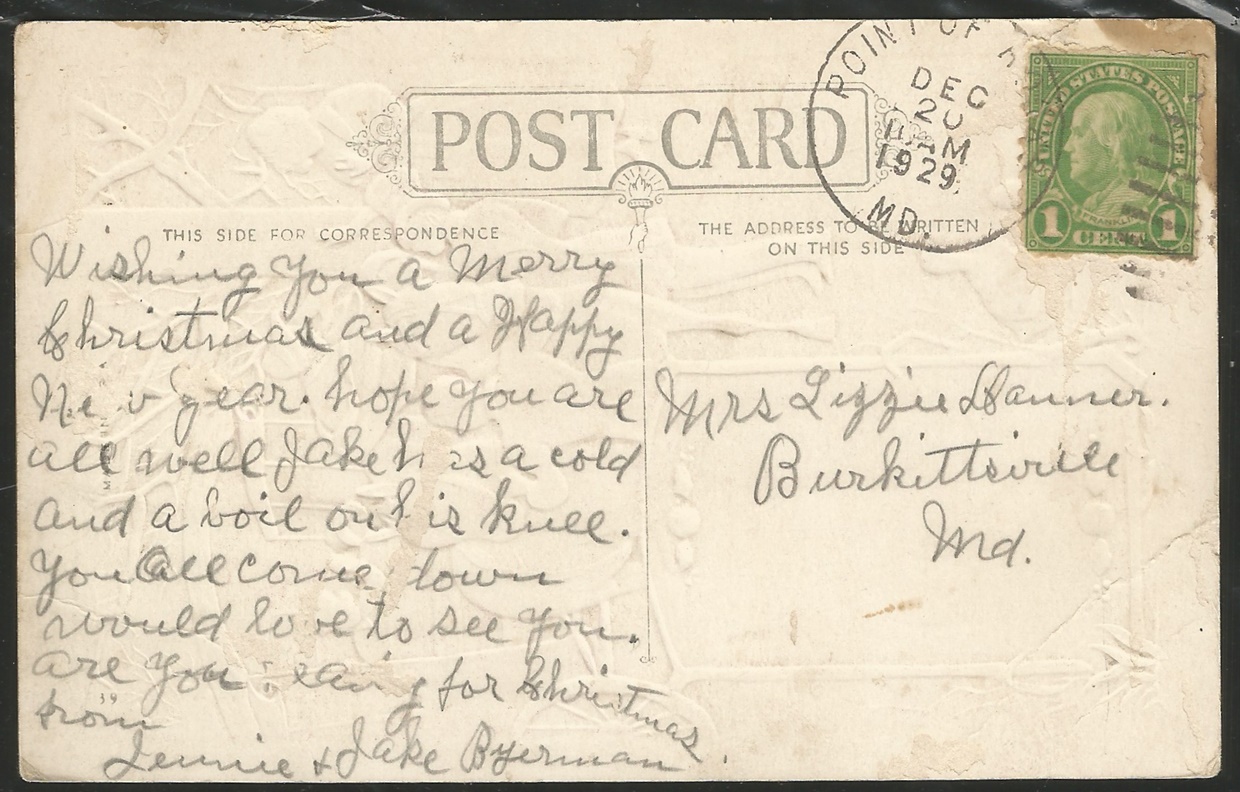 POST CARD
THIS SIDE FOR CORRESPONDENCE
THE ADDRESS TO BE WRITTEN
ON THIS SIDE
POINT OF R
DEC
20
AM
1929
MD.
UNITED STATES POSTAGE
FRANKLIN
1 CENT 1
Wishing You a Merry
Christmas and a Happy
New year. hope you are
all well Jake has a cold
and a boil on his knee.
You all come down
would love to see you.
are You for Christmas
from
Jennie & Jake Byerman
Mrs Lizzie Danner.
Burkittsville
Md.